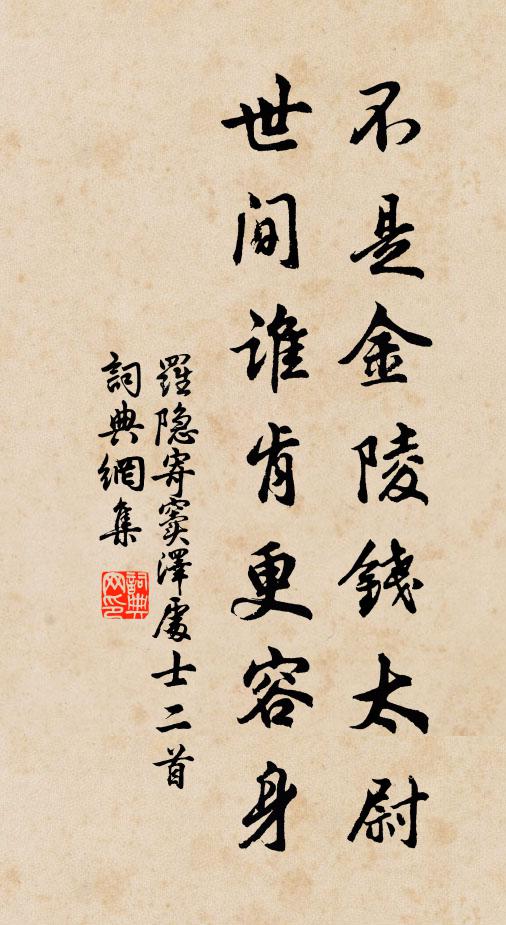 不是金陵錢太尉
世间誰肯更容身
羅隐寄窦澤處士二首
詞典網集
詞典网印